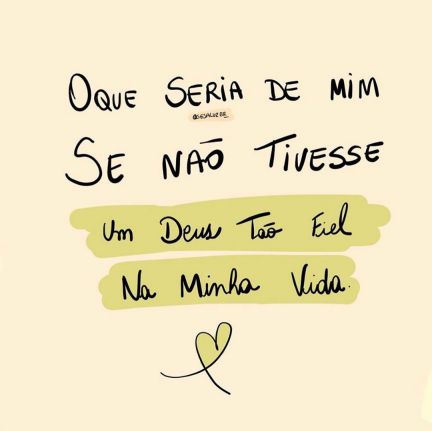 OQUE SERIA DE MIM
SE NÃO TIVESSE
Um Deus Tão Fiel
Na Minha Vida.